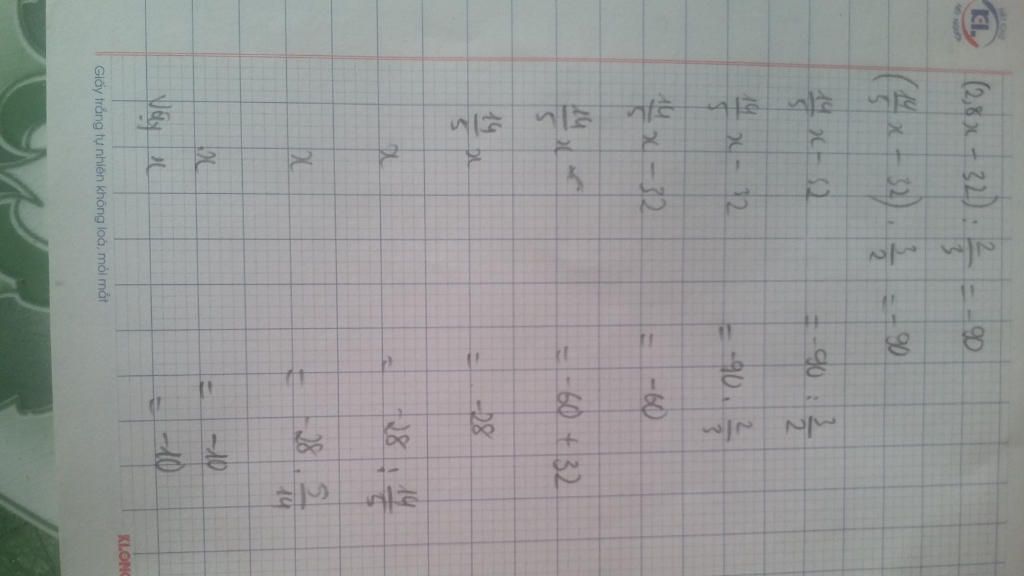 (2,8x - 32) : 2/3 = -90
(14/5 x - 32) . 3/2 = -90
14/5 x - 32 = -90 : 3/2
14/5 x - 32 = -90 . 2/3
14/5 x - 32 = -60
14/5 x = -60 + 32
14/5 x = -28
x = -28 : 14/5
x = -28 . 5/14
x = -10
Vậy x = -10
Giấy trắng tự nhiên không loá, mỏi mắt
KLONG